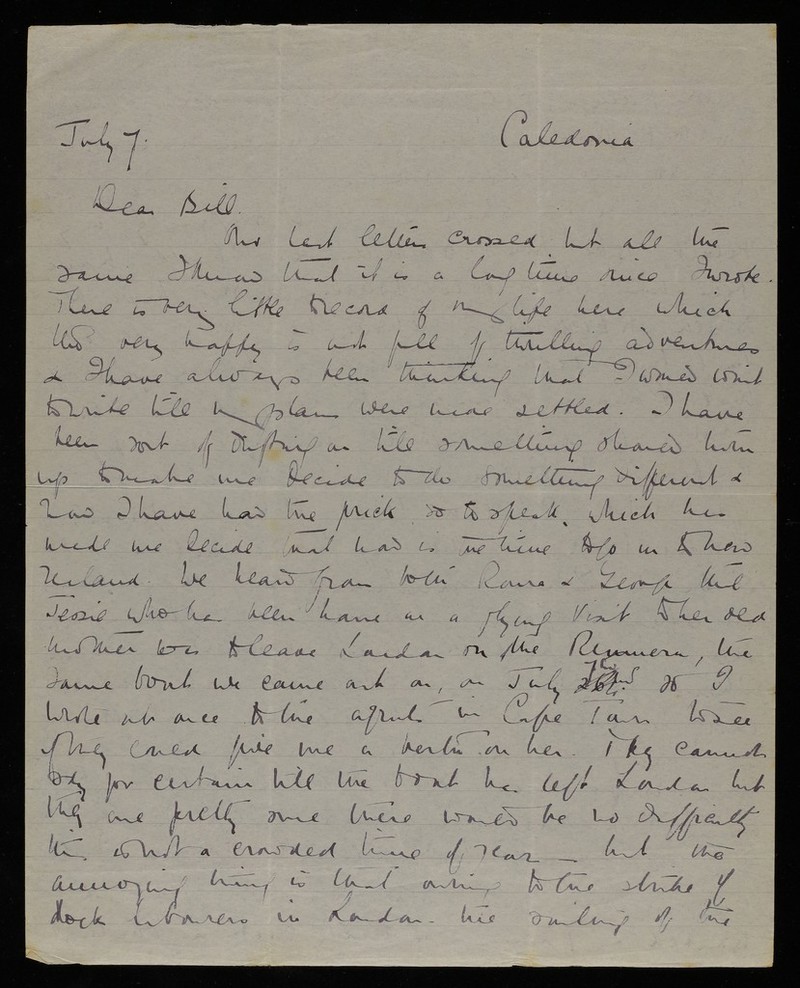 July 7.
Caledonia
Dear Bill.
Our last letters crossed but all the
same I know that it is a long time since I wrote.
There is very little to record of my life here which
tho very happy is not full of thrilling adventures
& I have always been thinking that I would wait
to write till my plans were more settled. I have
been sort of drifting on till something should turn
up to make me decide to do something different &
now I have had the prick so to speak, which has
made me decide that now is the time to go on to New
Zealand. We heard from both & George that
Jessie who has been home on a flying visit to her old
mother was to leave London on the Remuera, the
same boat we came out on, on July so I
wrote at once to the agents in Cape Town to see
if they could give me a berth on her. They cannot
say for certain till the boat has left London but
they are pretty sure there would be no difficulty
this is not a crowded time of year — but the
annoying thing is that owing to the strike of
dock labourers in London the sailing of the